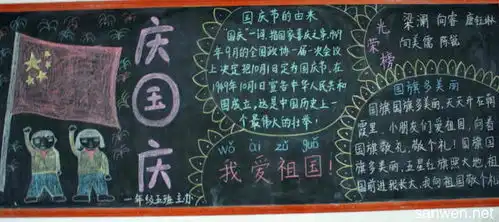 庆
国
庆
一年级五班主办
国庆节的由来
"国庆"一词，指国家喜庆之事，1949
年9月的全国政协一届一次会议
上决定把10月1日定为国庆节，在
1949年10月1日宣告中华人民共和
国成立，这是中国历史上一
个最伟大的壮举。
wǒ ài zǔ guó
我爱祖国！
光荣榜
梁澜 向睿
向美儒 陈筱
国旗多美丽
国旗国旗多美丽，天天升在朝
霞里，小朋友们爱祖国，向着
国旗敬礼，敬个礼！国旗国
旗多美丽，五星红旗照大地，祖
国前进我长大，我向祖国敬个礼
sanwen.net